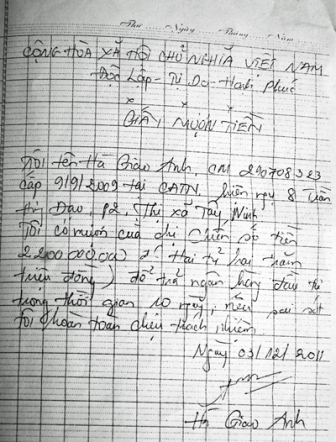 Thứ Ngày Tháng Năm
CỘNG HÒA XÃ HỘI CHỦ NGHĨA VIỆT NAM
Độc Lập - Tự Do - Hạnh Phúc
GIẤY MƯỢN TIỀN
Tôi tên Hà Giao Anh, CM 290708323
cấp 9/9/2009 tại CATN, hiện ngụ 8 Trần
thị Đào, P2, Thị xã Tây Ninh
Tôi có mượn của chị Chiến số tiền
2200.000.000 đ Hai tỷ hai trăm
triệu đồng) để trả ngân hàng đầu tư
trong thời gian 10 ngày, nếu sai sót
tôi hoàn toàn chịu trách nhiệm
Ngày 03/12/2011
Hà Giao Anh